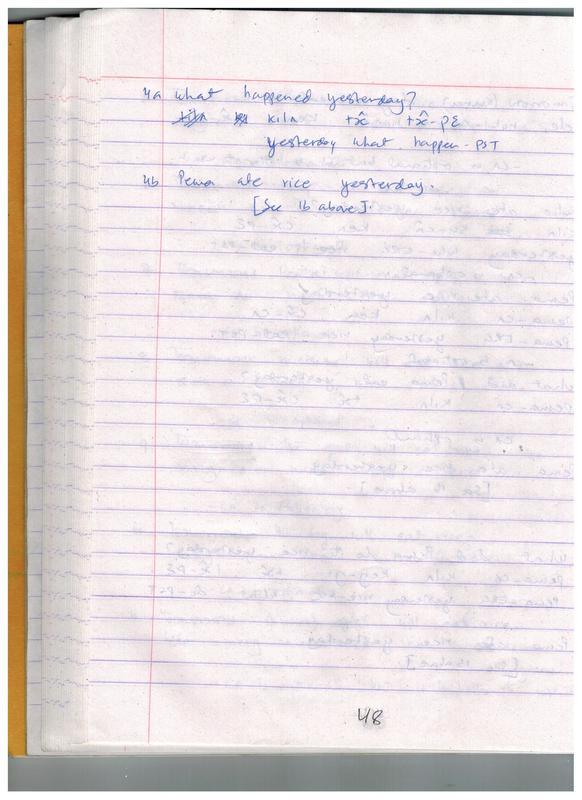 4a What happened yesterday?
kilʌ tx̂ tx̂-pɛ
yesterday what happen-PST
4b Pewa ate rice yesterday.
[See 1b above].
48